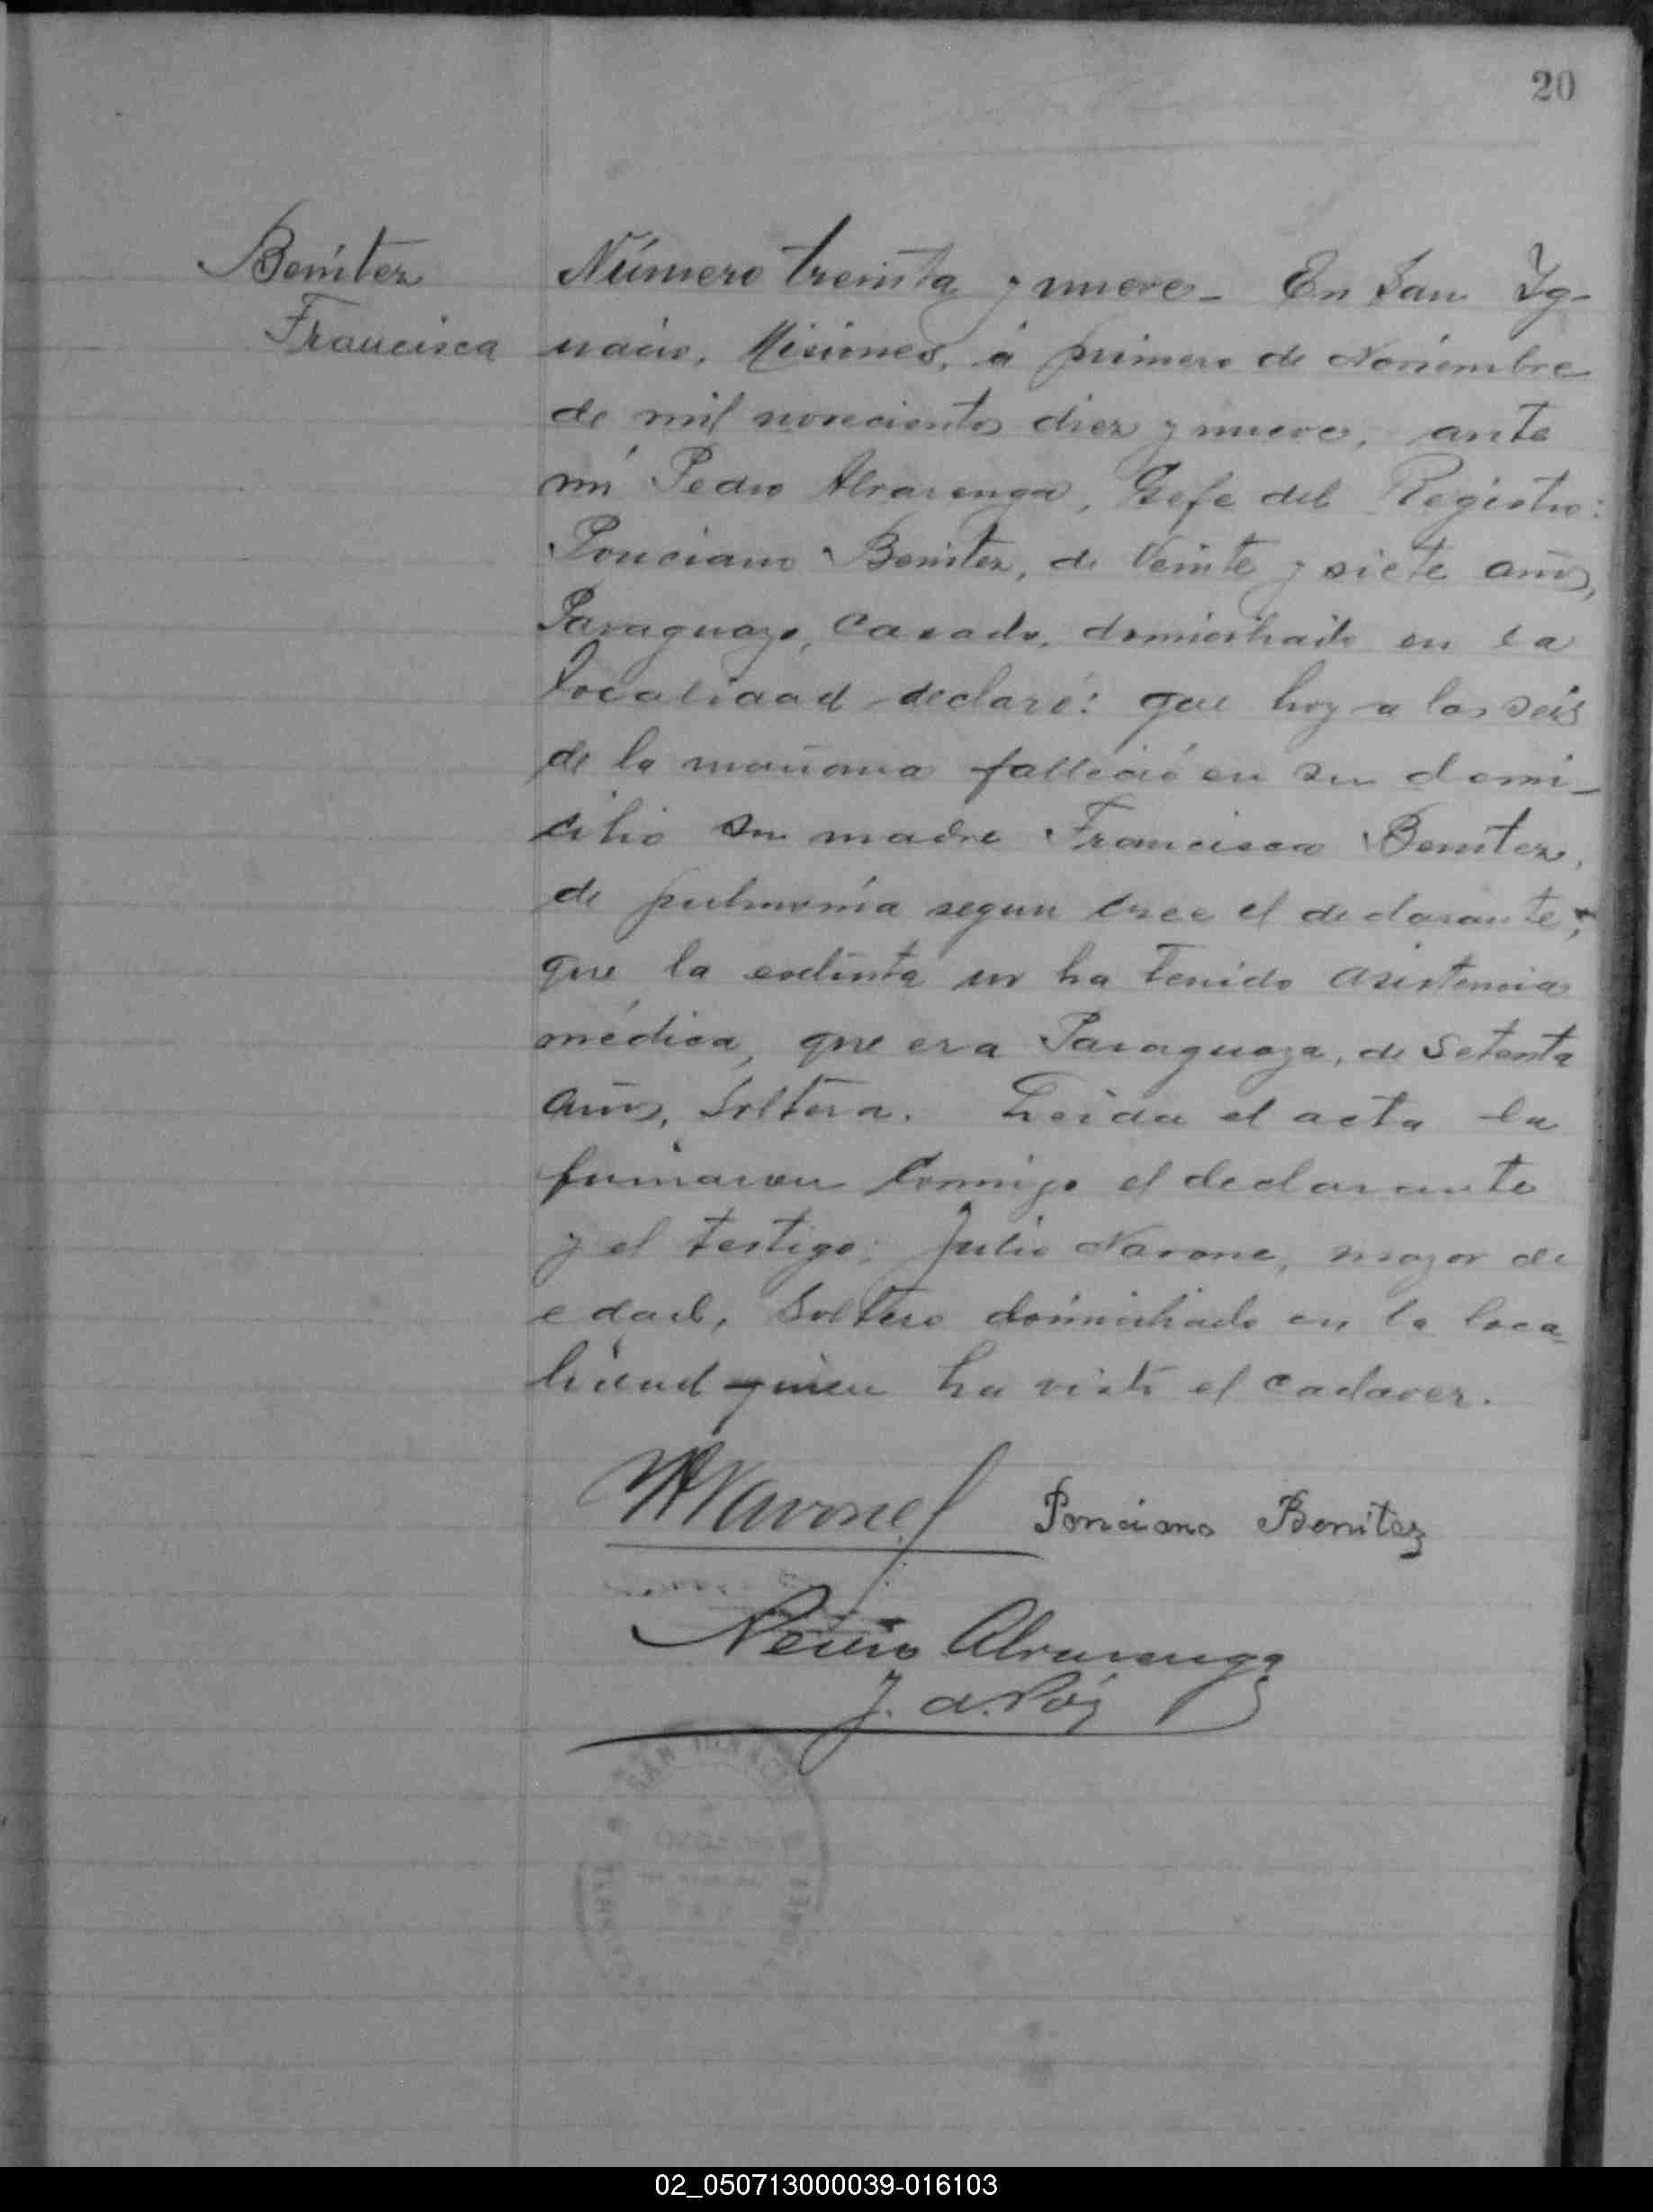 20
Benitez
Francisca
Número treinta y nueve_ En San Ig-
nacio, Misiones, á primero de Noviembre
de mil novecientos diez y nueve, ante
mí Pedro Alvarenga, Gefe del Registro:
Ponciano Benitez, de veinte y siete años,
Paraguayo, casado, domiciliado en la
localidad declaró: que hoy a las seis
de la mañana falleció en su domi-
cilio su madre Francisca Benitez,
de pulmonía segun cree el declarante;
que la extinta no ha tenido asistencia
médica, que era Paraguaya, de setenta
años, soltera. Leida el acta la
firmaron conmigo el declarante
y el testigo: Julio Navone, mayor de
edad, soltero domiciliado en la loca-
lidad quien ha visto el cadaver.
Navone
Ponciano Benitez
Pedro Alvarenga
J. de Paz
SAN IGNACIO
02_050713000039-016103